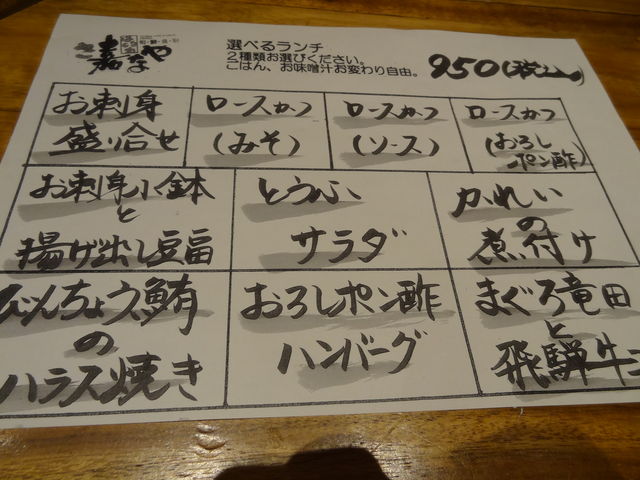 嘉なや
選べるランチ
2種類お選びください。
ごはん、お味噌汁お変わり自由。
950(税込)
お刺身
盛り合せ
ロースカツ
(みそ)
ロースカツ
(ソース)
ロースカツ
(おろし
ポン酢)
お刺身小鉢
と
揚げ出し豆富
とうふ
サラダ
かれい
の
煮付け
びんちょう鮪
の
ハラス焼き
おろしポン酢
ハンバーグ
まぐろ竜田
と
飛騨牛コ